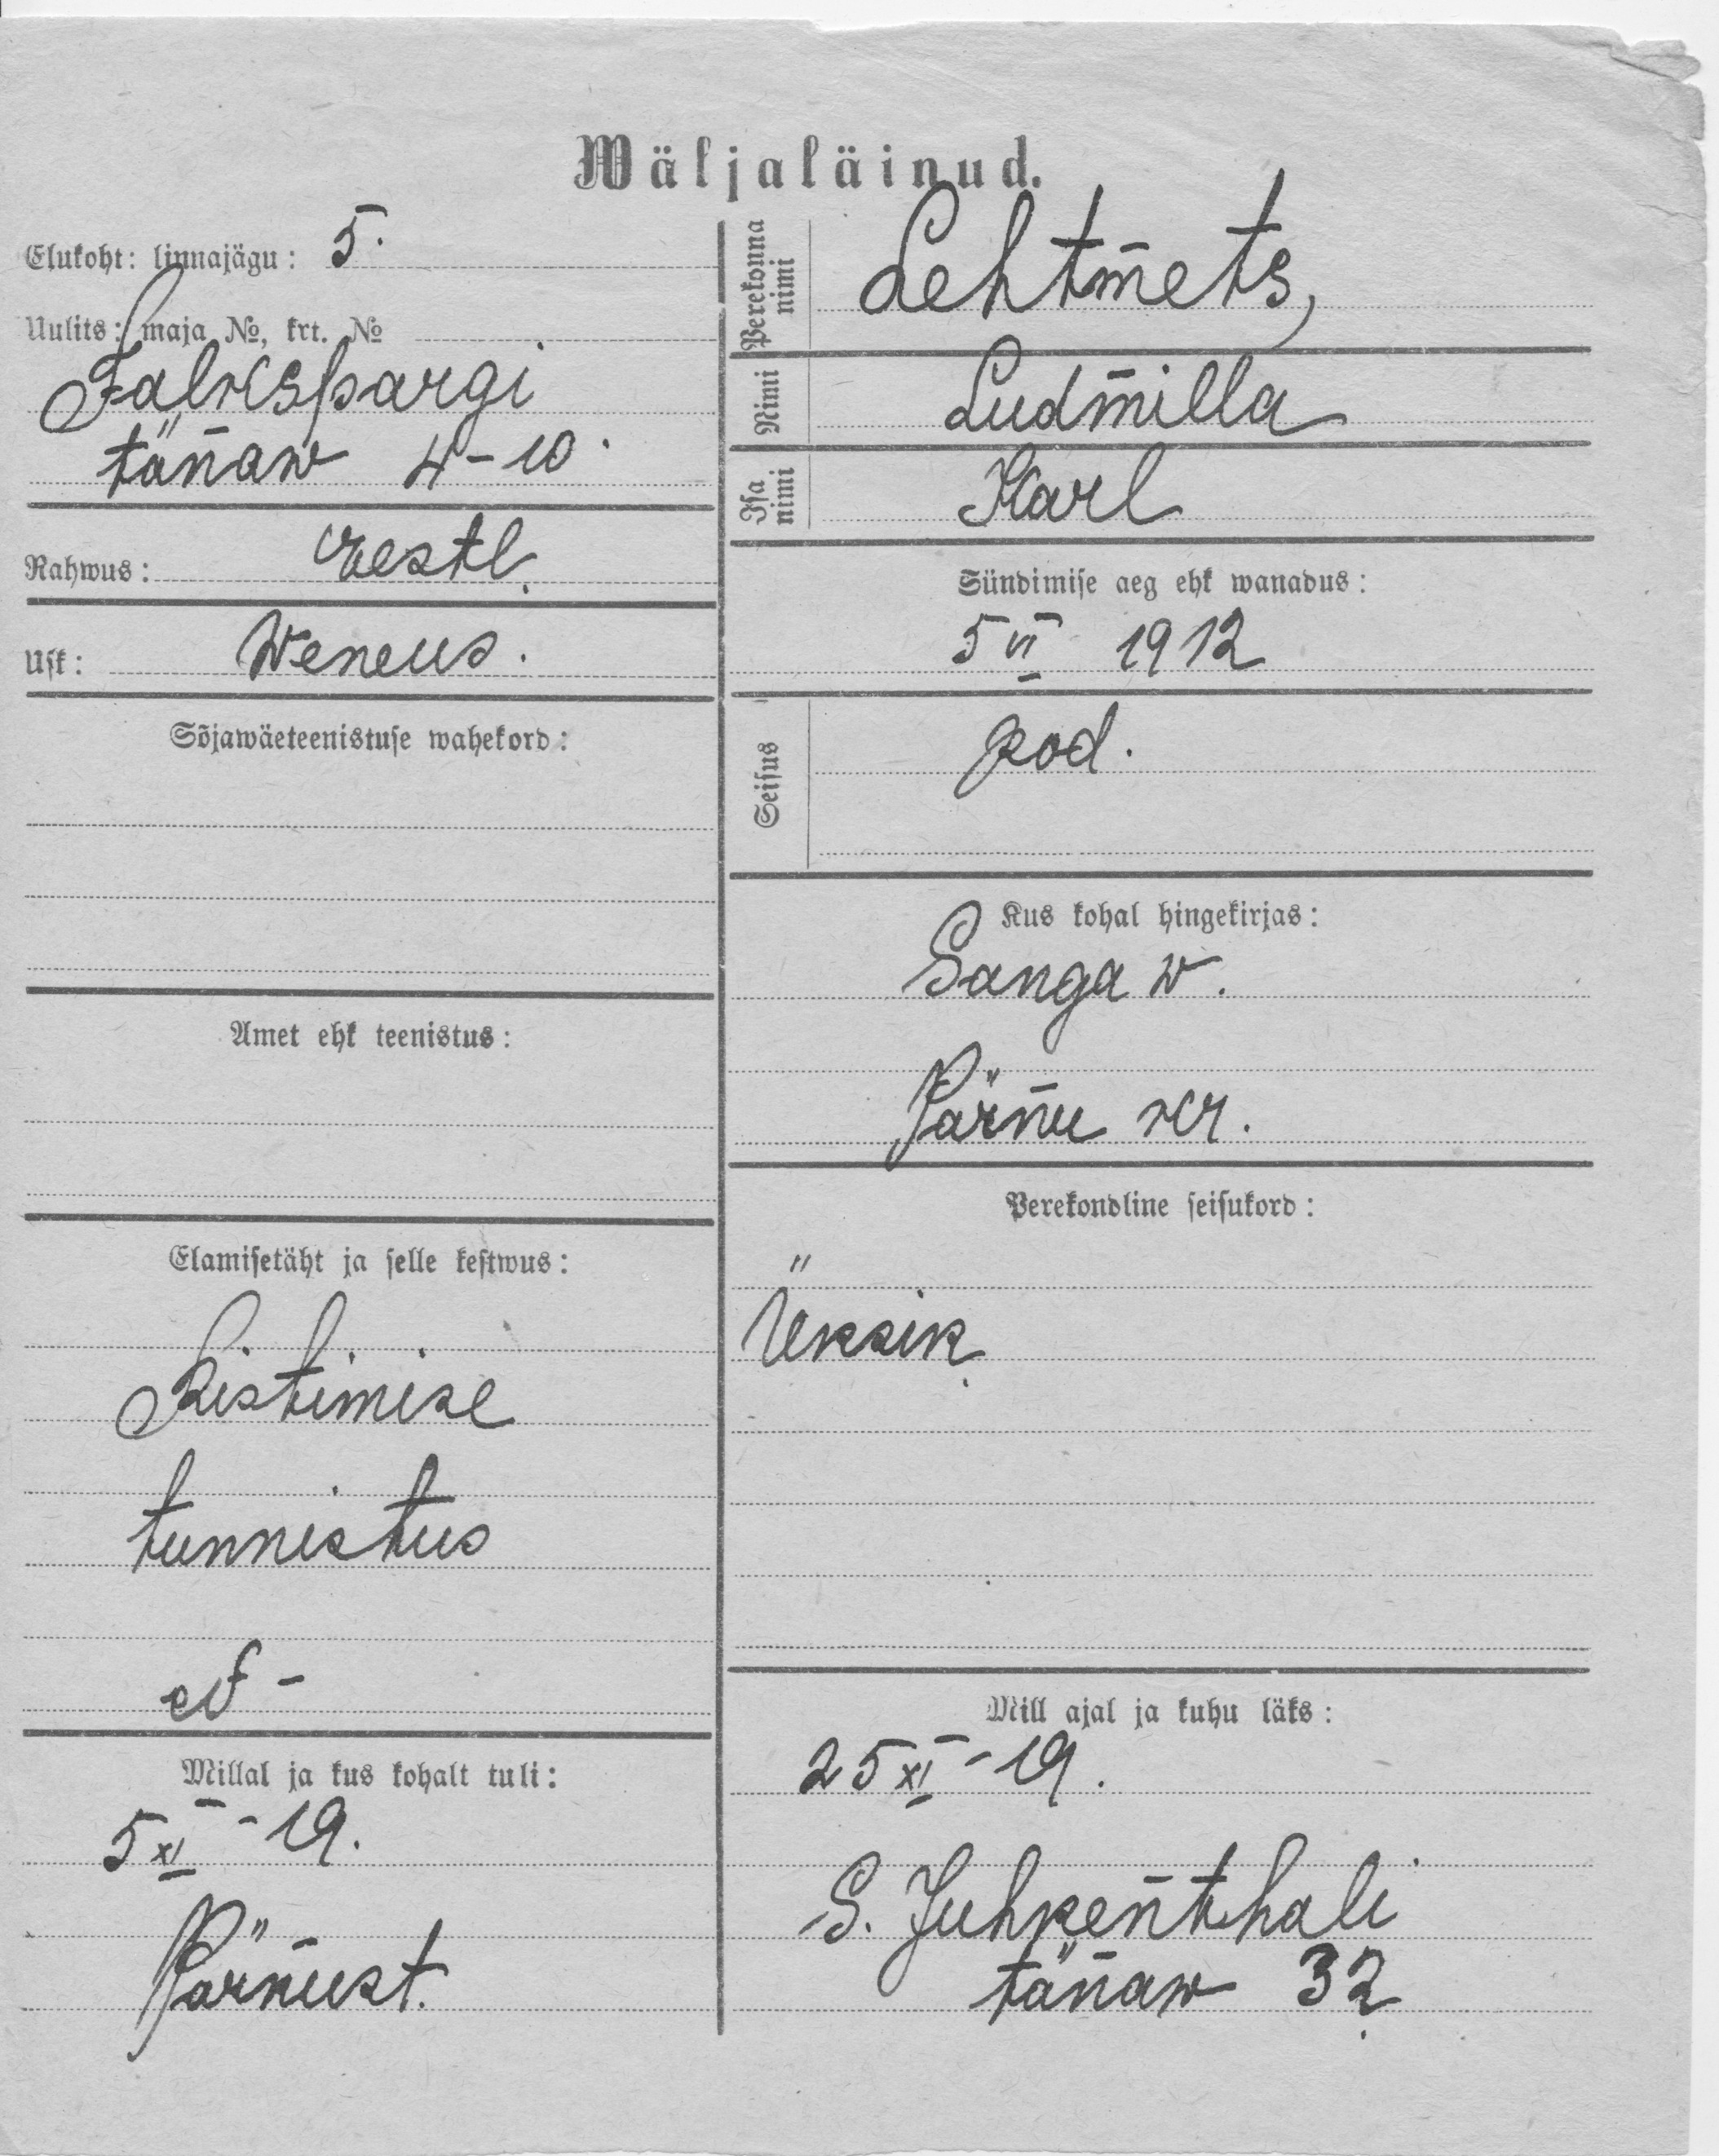 Wäljaläinud.
Elukoht: linnajägu: 5.
Uulits: maja №, krt. №
Falkspargi
tänaw 4-10.
Rahwus: eestl.
Usk: Weneus.
Sõjawäeteenistuse wahekord:
Amet ehk teenistus:
Elamisetäht ja selle kestwus:
Ristimise
tunnistus
Millal ja kus kohalt tuli:
5 XI - 19.
Pärnust.
Perekonna nimi Lehtmets,
Nimi Ludmilla
Isa nimi Karl
Sündimise aeg ehk wanadus:
5 VI 1912
Seisus pod.
Kus kohal hingekirjas:
Sanga w.
Pärnu kr.
Perekondline seisukord:
Üksik
Mill ajal ja kuhu läks:
25 XI - 19.
S. Juhkenthali
tänaw 32